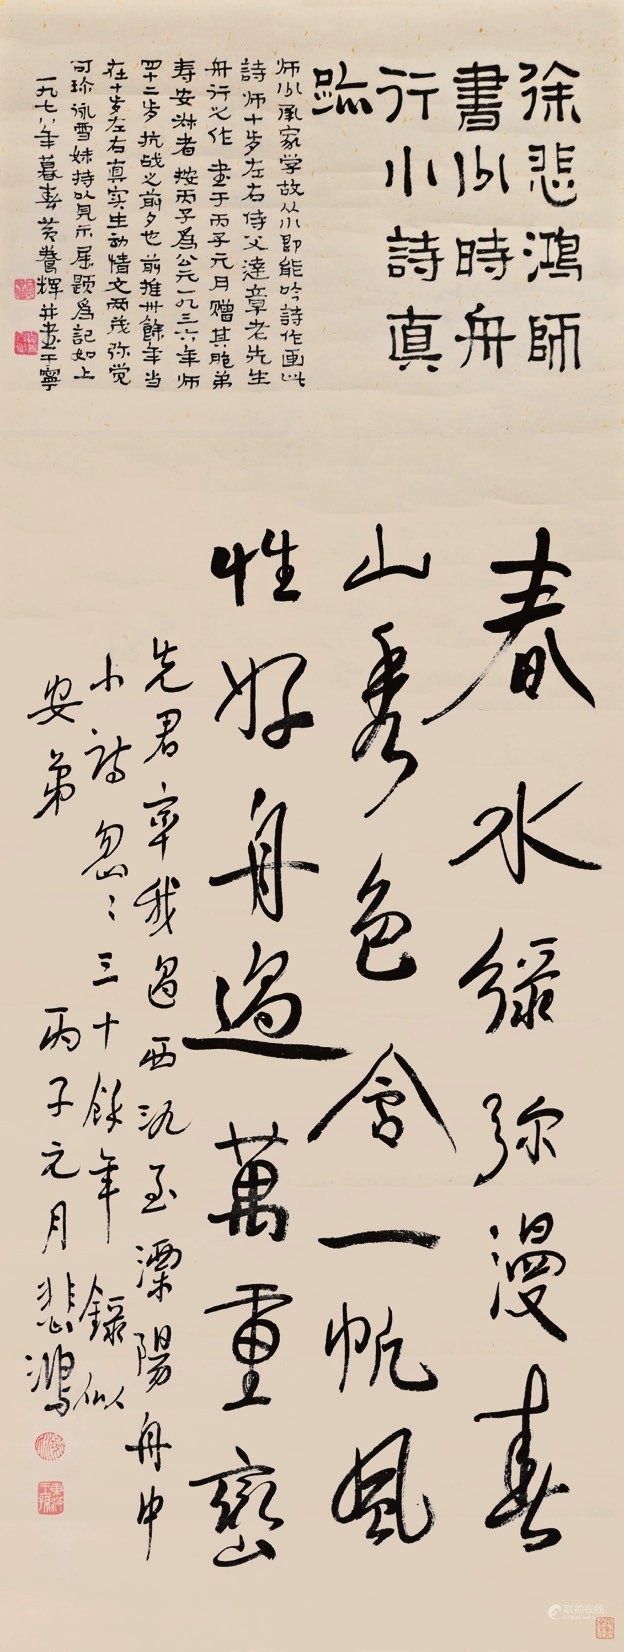 徐悲鸿師
書少時舟
行小詩真
跡
師少承家学故从小即能吟詩作画此
詩师十岁左右侍父達章老先生
舟行之作 書于丙子元月赠其胞弟
寿安弟者 按丙子為公元一九三六年师
四十二岁抗战之前夕也 前推卅餘年当
在十岁左右真实生动情文两茂弥觉
可珍咏雪妹持以見示属题為記如上
一九七八年暮春黄養輝并書于寧
春水綠弥漫春
山秀色含一帆風
性好舟過萬重巒
先君率我過西氿至溧陽舟中
小诗忽忽三十餘年 錄似
安弟 丙子元月悲鴻